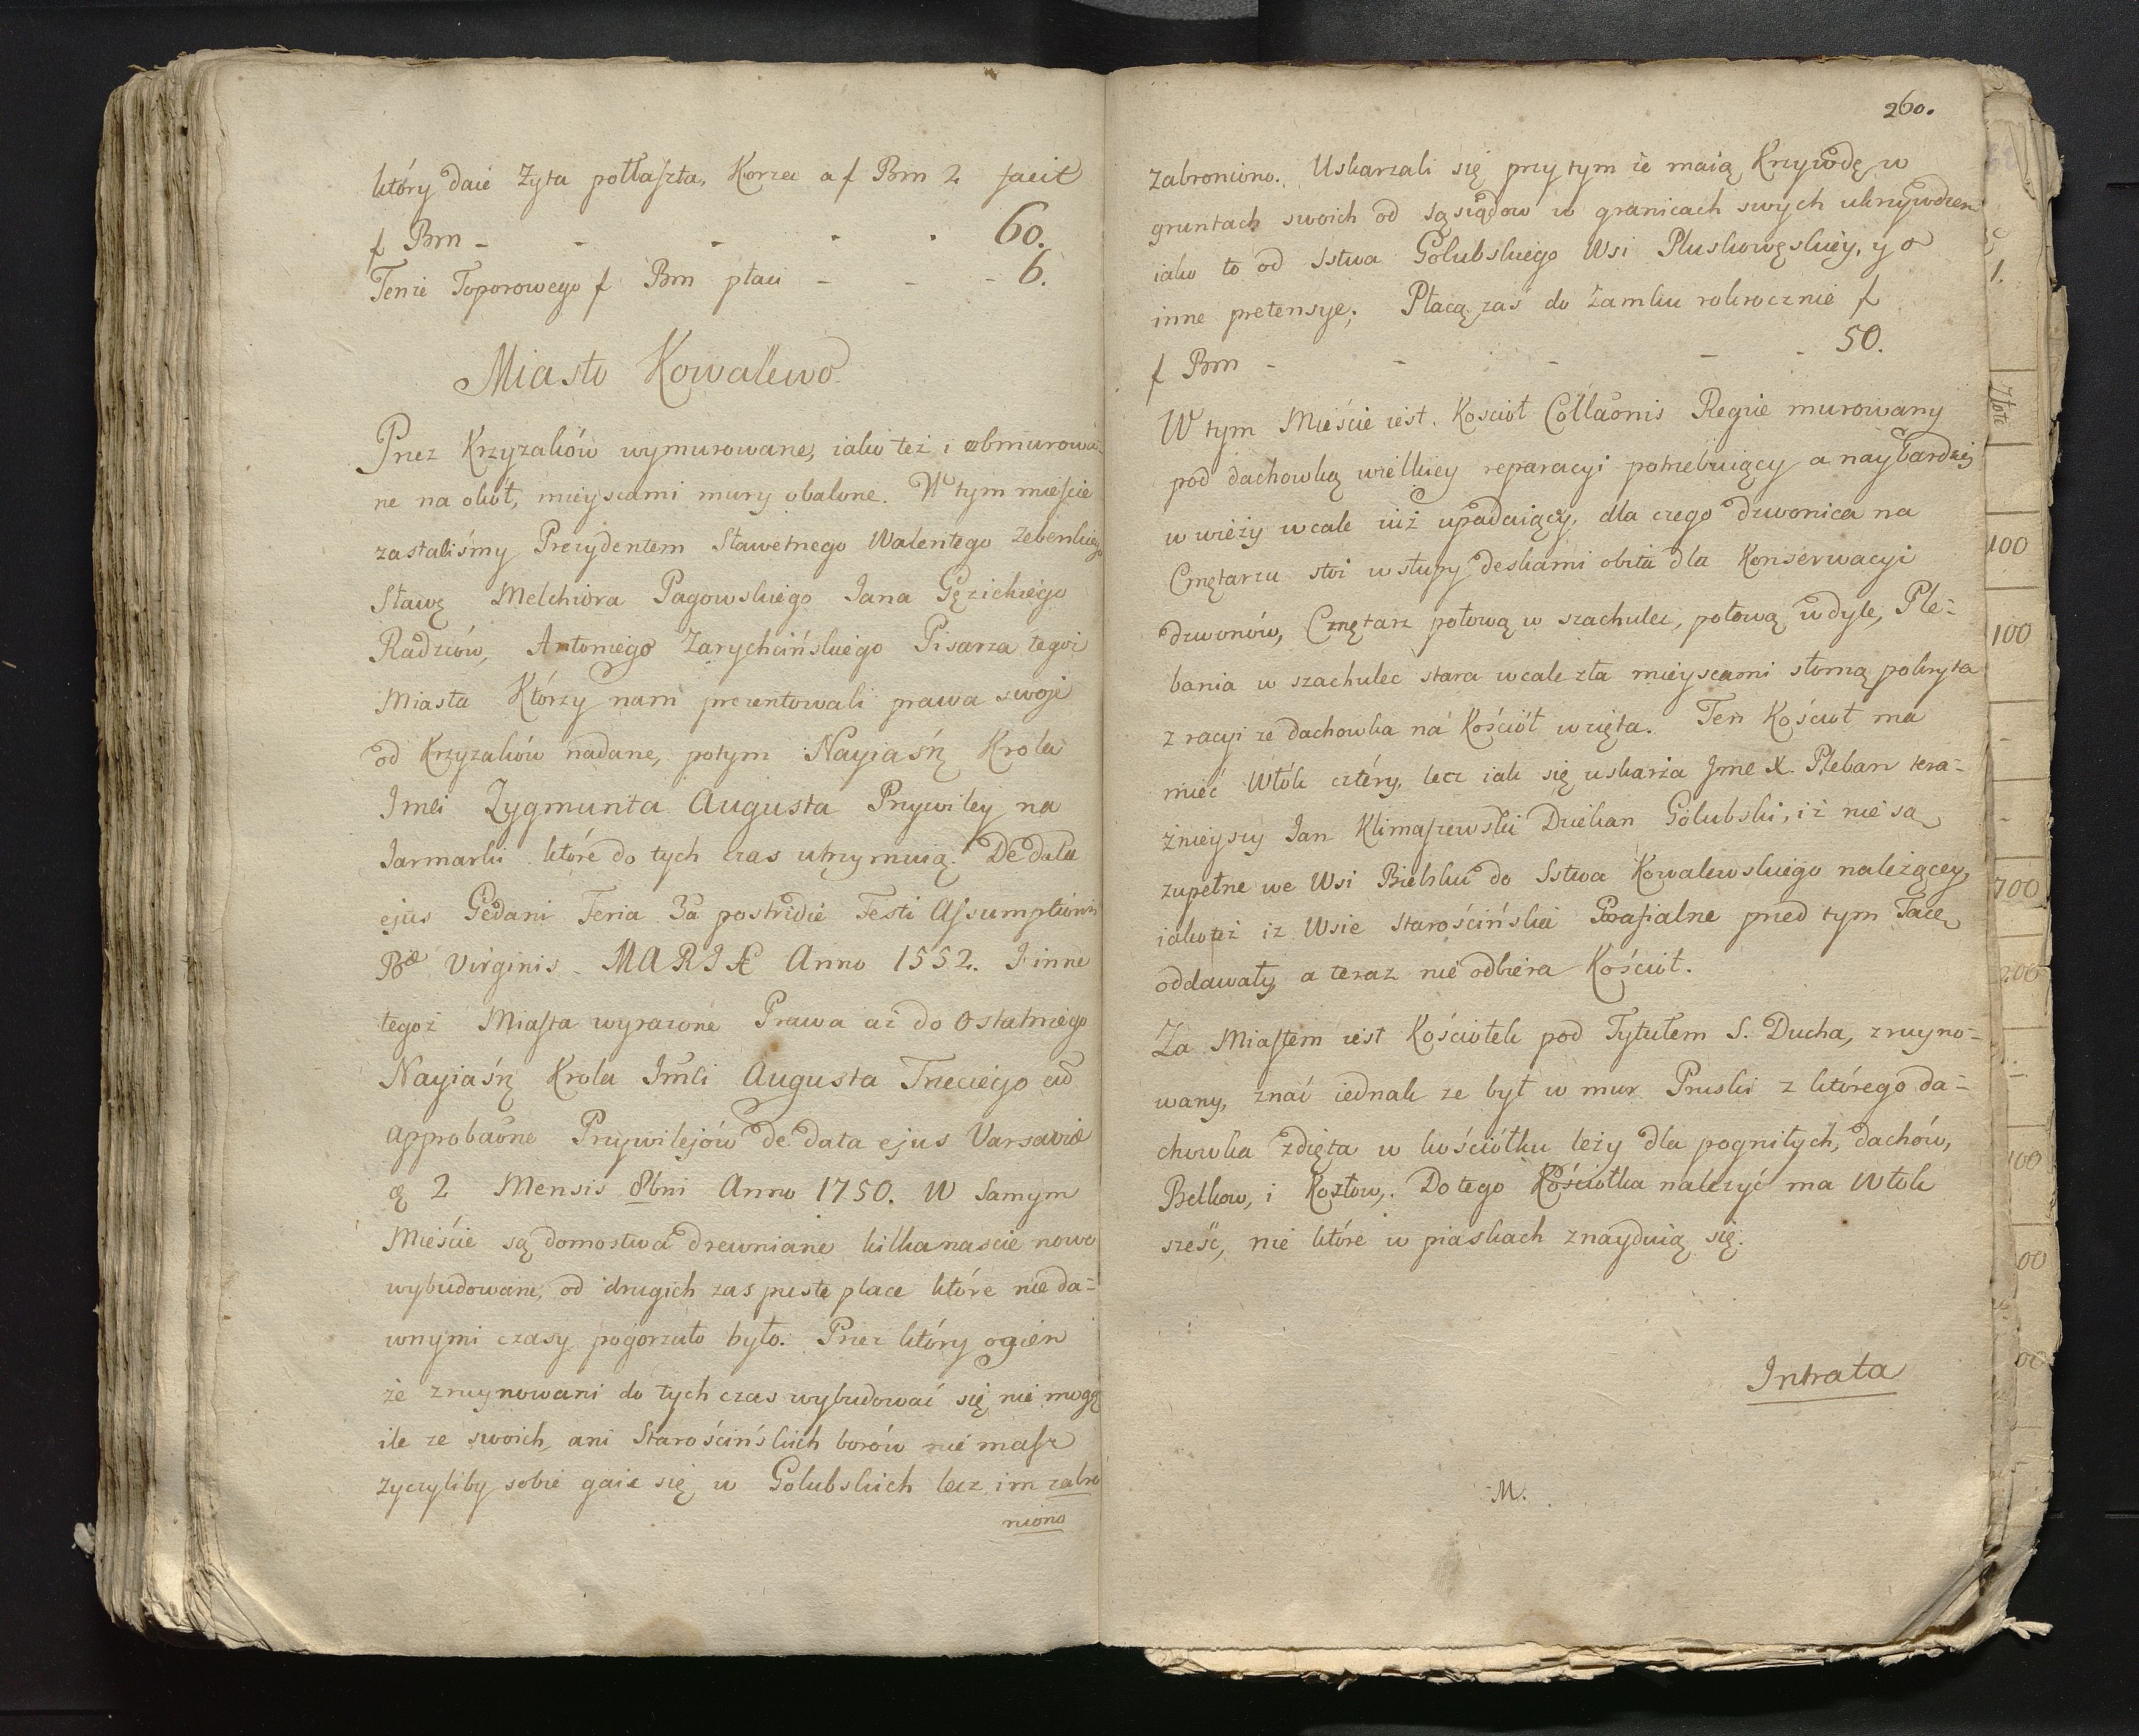 który daie Zyta połłaszta, Korzec a f Brn 2 facit
f Brn - - - - - 60.
Tenże Toporowego f Brn płaci - - - 6.
Miasto Kowalewo
Przez Krzyzaków wymurowane, iako też i obmurowa-
ne na okół, mieyscami mury obalone. W tym mieście
zastaliśmy Prezydentem Sławetnego Walentego
Sławę Melchiora Pagowskiego Jana Gęzickiego
Radzców, Antoniego Zarychcińskiego Pisarza tegoż
Miasta Którzy nam prezentowali prawa swoje
od Krzyzaków nadane, potym Nayiaśn Krola
Jmci Zygmunta Augusta Przywiley na
Jarmarki które do tych czas utrzymuią. De data
ejus Gedani Feria 3a postridie Festi Assumptionis
Bæ Virginis MARIÆ Anno 1552. I inne
tegoż Miasta wyrazone Prawa aż do Ostatniego
Nayiaśn Krola Jmci Augusta Trzeciego ad
approbaõne Przywilejów de data ejus Varsaviæ
2 Mensis 8bris Anno 1750. W Samym
Mieście są domostwa drewniane kilkanascie nowo
wybudowane, od drugich zas puste place które nieda-
wnymi czasy pogorzało było. Przez który ogien
że zruynowani do tych czas wybudować się nie mogą
ile ze swoich, ani Starościńskich borów nie masz
zyczyliby sobie gaic się w Golubskich lecz im zabro
niono
260.
zabroniono. Uskarzali się przy tym że maią Krzywdę w
gruntach swoich od sąsiądow w granicach swych ukrzywdzen
iako to od Sstwa Golubskiego Wsi Pluskowęskiey, y o
inne pretensye; Płacą zaś do Zamku rokrocznie f
f Brn - - - - - 50.
W tym Mieście iest Kosciół Collaõnis Regiæ murowany
pod dachowką wielkiey reparacyi potrzebuiący a naybardziey
w wieży wcale iuż upadaiący, dla czego dzwonica na
Cmętarzu stoi w słupy deskami obita dla Konserwacyi
dzwonów, Cmętarz połową w szachulec, połową w dyle, Ple-
bania w szachulec stara wcale zła mieyscami słomą pokryta
z racyi ze dachowka na Kościół wzięta. Ten Kościoł ma
mieć Włók cztéry, lecz iak się uskarża Jme X. Pleban tera-
źnieyszy Jan Klimaszewski Dziekan Golubski, iż nie są
zupełne we Wsi Bielsku do Sstwa Kowalewskiego należącey,
iakoteż iz Wsie Starościńskie Parafialne przed tym Tacę
oddawały, a teraz nie odbiera Kościół.
Za Miastem iest Kościołek pod Tytułem S. Ducha, zruyno-
wany, znać iednak ze był w mur Pruski z którego da-
chowka zdięta w kościółku leży dla pogniłych, dachów,
Belkow, i Kozłow,. Do tego Kościołka należyć ma Włok
sześć, nie które w piaskach znayduią się.
Intrata
M.
1.
Złote
100
100
700
200
100
00
00